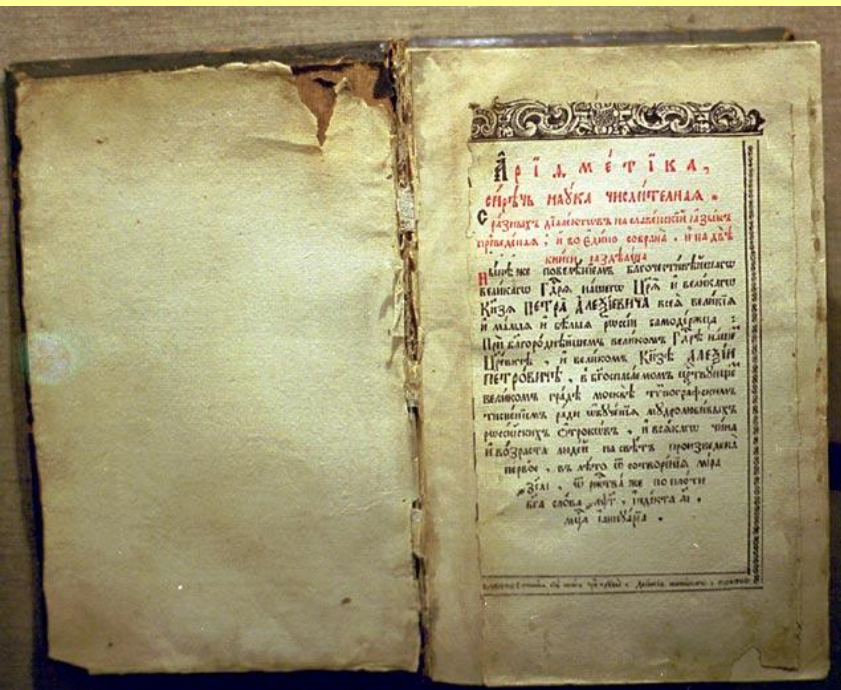 Арїѳме́тїка,
си́рѣчь наꙋ́ка числи́телнаѧ.
С ра́зныхъ дїале́ктѡвъ на славе́нскїй ꙗ҆зы́къ
преведе́наѧ, и҆ во є҆ди́но собрана̀, и҆ на двѣ̀
кни̑ги раздѣлена̀
Ны́нѣ же повелѣ́нїемъ благочести́вѣйшагѡ
вели́кагѡ Гдⷭ҇рѧ на́шегѡ Цр҃ѧ̀ и҆ вели́кагѡ
Кн҃зѧ ПЕТРА̀ А҆ЛЕѮІ́ЕВИЧА всеѧ̀ вели́кїѧ
и҆ ма́лыѧ и҆ бѣ́лыѧ рѡссі́и самоде́ржца:
При бл҃горо́днѣйшемъ вели́комъ Гдⷭ҇рѣ на́шемъ
Цр҃е́вичѣ, и҆ вели́комъ Кн҃зѣ А҆ЛЕѮІ́И
ПЕТРО́ВИЧѢ, в бг҃оспаса́емомъ ца́рствꙋющемъ
вели́комъ гра́дѣ москвѣ̀ тѷпогра́фскимъ
тисне́нїемъ ра́ди ѡ҆бꙋче́нїѧ мꙋдролюби́выхъ
рѡссі́йскихъ ѻ҆́трокѡвъ, и҆ всѧ́кагѡ чи́на
и҆ во́зраста люде́й на свѣ́тъ произведена̀
пе́рвое, въ лѣ́то ѿ сотворе́нїѧ мі́ра
҂зс҃аі, ѿ рж҇тва̀ же по пло́ти
бг҃а сло́ва ҂аѱ҃г, і҆ндї́кта аі.
мцⷭ҇а і҆аннꙋа́рїа.